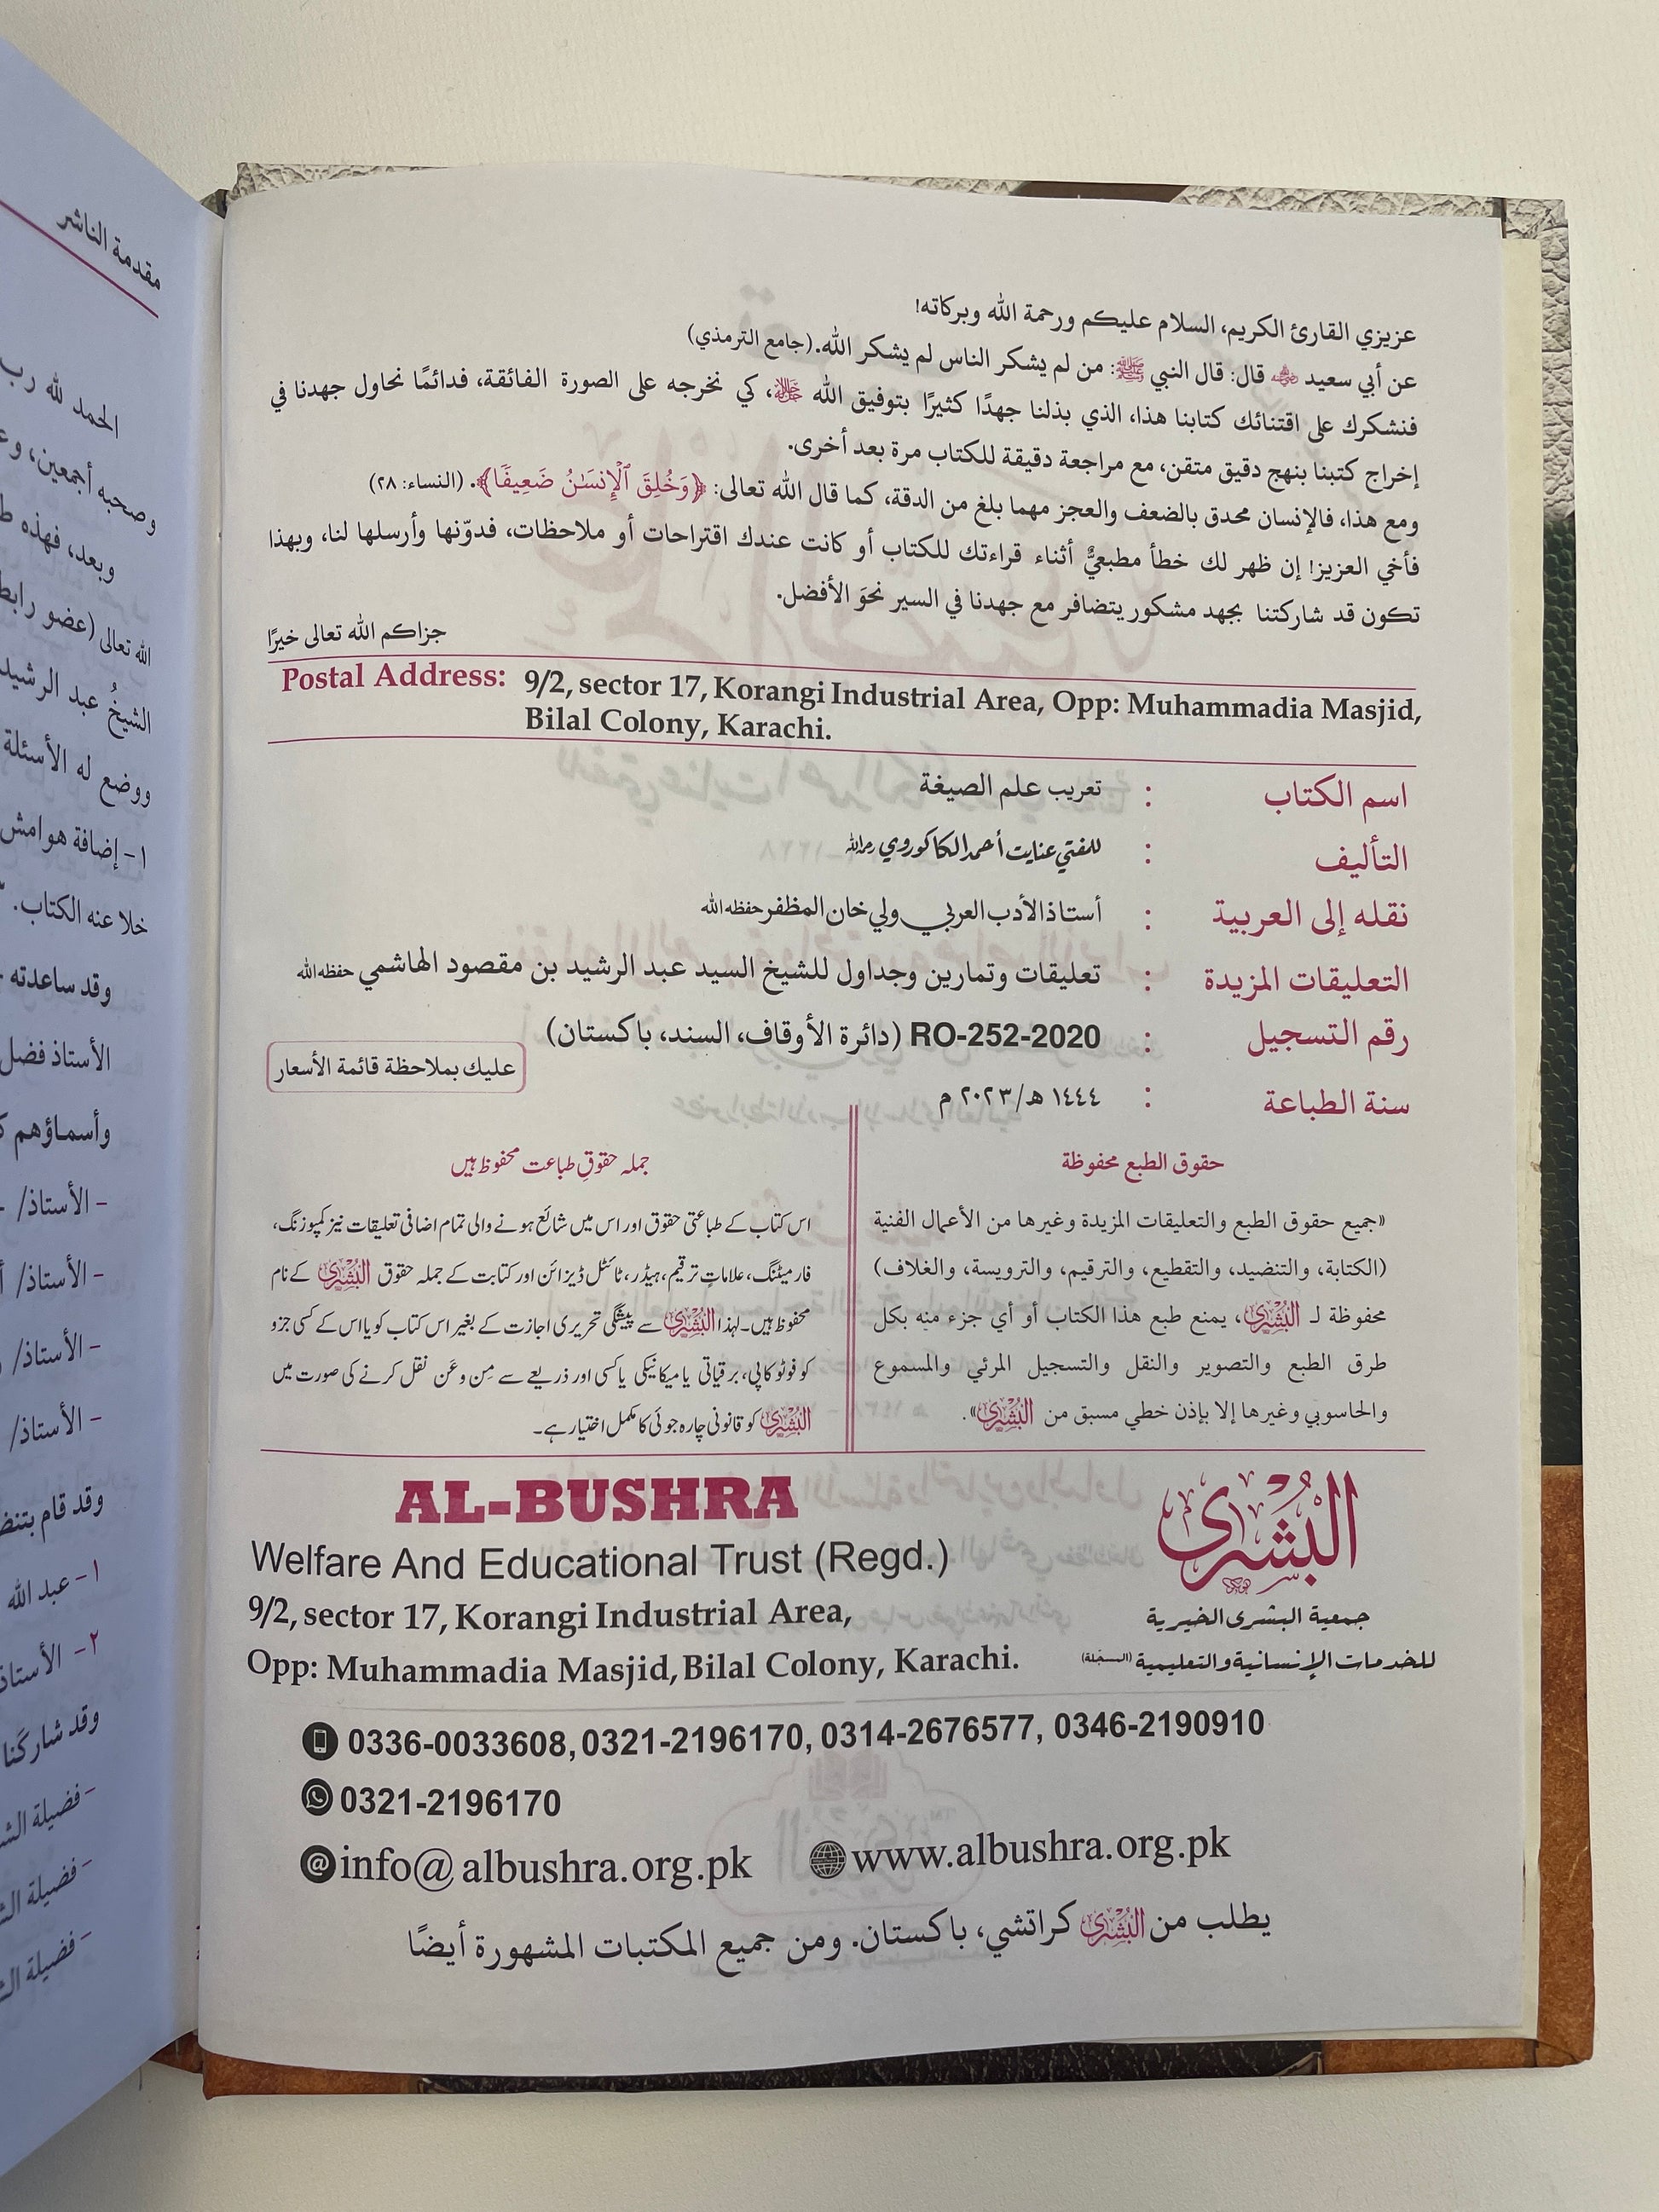 عزيزي القارئ الكريم، السلام عليكم ورحمة الله وبركاته!
عن أبي سعيد ﷺ قال: قال النبي ﷺ: من لم يشكر الناس لم يشكر الله. (جامع الترمذي)
فنشكرك على اقتنائك كتابنا هذا، الذي بذلنا جهدًا كثيرًا بتوفيق الله ﷻ، كي نخرجه على الصورة الفائقة، فدائمًا نحاول جهدنا في
إخراج كتبنا بنهج دقيق متقن، مع مراجعة دقيقة للكتاب مرة بعد أخرى.
ومع هذا، فالإنسان محدق بالضعف والعجز مهما بلغ من الدقة، كما قال الله تعالى: ﴿وَخُلِقَ ٱلْإِنسَٰنُ ضَعِيفًا﴾. (النساء: ٢٨)
فأخي العزيز! إن ظهر لك خطأ مطبعيٌّ أثناء قراءتك للكتاب أو كانت عندك اقتراحات أو ملاحظات، فدوّنها وأرسلها لنا، وبهذا
تكون قد شاركتنا بجهد مشكور يتضافر مع جهدنا في السير نحوَ الأفضل.
جزاكم الله تعالى خيرًا
Postal Address: 9/2, sector 17, Korangi Industrial Area, Opp: Muhammadia Masjid,
Bilal Colony, Karachi.
اسم الكتاب : تعريب علم الصيغة
التأليف : للمفتي عنايت أحمد الكاكوروي رحمه الله
نقله إلى العربية : أستاذ الأدب العربي ولي خان المظفر حفظه الله
التعليقات المزيدة : تعليقات وتمارين وجداول للشيخ السيد عبد الرشيد بن مقصود الهاشمي حفظه الله
رقم التسجيل : RO-252-2020 (دائرة الأوقاف، السند، باكستان)
سنة الطباعة : ١٤٤٤ هـ/٢٠٢٣ م
عليك بملاحظة قائمة الأسعار
حقوق الطبع محفوظة
«جميع حقوق الطبع والتعليقات المزيدة وغيرها من الأعمال الفنية
(الكتابة، والتنضيد، والتقطيع، والترقيم، والترويسة، والغلاف)
محفوظة لـ البُشرى، يمنع طبع هذا الكتاب أو أي جزء منه بكل
طرق الطبع والتصوير والنقل والتسجيل المرئي والمسموع
والحاسوبي وغيرها إلا بإذن خطي مسبق من البُشرى».
جملہ حقوقِ طباعت محفوظ ہیں
اس کتاب کے طباعتی حقوق اور اس میں شائع ہونے والی تمام اضافی تعلیقات نیز کمپوزنگ،
فارمیٹنگ، علاماتِ ترقیم، ہیڈر، ٹائٹل ڈیزائن اور کتابت کے جملہ حقوق البُشرى کے نام
محفوظ ہیں۔ لہٰذا البُشرى سے پیشگی تحریری اجازت کے بغیر اس کتاب کو یا اس کے کسی جزو
کو فوٹو کاپی، برقیاتی یا میکانیکی یا کسی اور ذریعے سے مِن و عَن نقل کرنے کی صورت میں
البُشرى کو قانونی چارہ جوئی کا مکمل اختیار ہے۔
AL-BUSHRA
Welfare And Educational Trust (Regd.)
9/2, sector 17, Korangi Industrial Area,
Opp: Muhammadia Masjid, Bilal Colony, Karachi.
البُشرى
جمعية البشرى الخيرية
للخدمات الإنسانية والتعليمية (المسجلة)
0336-0033608, 0321-2196170, 0314-2676577, 0346-2190910
0321-2196170
info@albushra.org.pk www.albushra.org.pk
يطلب من البُشرى كراتشي، باكستان. ومن جميع المكتبات المشهورة أيضًا
مقدمة الناشر
الحمد لله رب
وصحبه أجمعين،
وبعد، فهذه
الله تعالى (عضو
الشيخُ عبد الرشيد
ووضع له الأسئلة
١- إضافة هوامش
خلا عنه الكتاب.
وقد ساعدته
الأستاذ فضل
وأسماؤهم
- الأستاذ/
- الأستاذ/
- الأستاذ/
- الأستاذ/
وقد قام
١- عبد الله
٢- الأستاذ
وقد شاركَنا
- فضيلة
- فضيلة
- فضيلة